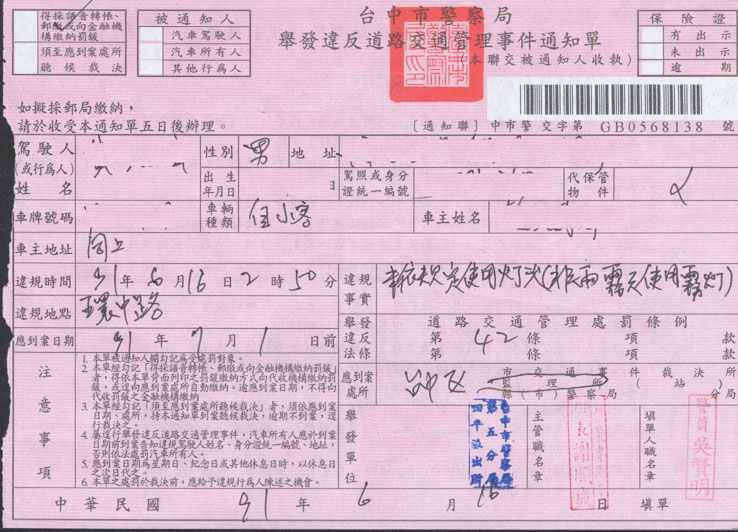 得採語音轉帳、
郵繳或向金融機
構繳納罰鍰
須至應到案處所
聽候裁決
被通知人
汽車駕駛人
汽車所有人
其他行為人
台中市警察局
舉發違反道路交通管理事件通知單
(本聯交被通知人收款)
保險證
有出示
未出示
逾期
如擬採郵局繳納,
請於收受本通知單五日後辦理。
〔通知聯〕中市警 交字第 GB0568138 號
駕駛人
(或行為人)
姓名
性別 男 地址
出生
年月日
駕照或身分
證統一編號
代保管
物件
車牌號碼
車輛
種類
自小客
車主姓名
車主地址 同上
違規時間 91年6月16日2時50分
違規
事實
未依規定使用灯光(非在雨霧天使用霧灯)
違規地點 環中路
舉發
違反
法條
道路交通管理處罰條例
第 42 條 項 款
第 條 項 款
應到案日期 91年7月1日前
應到案
處所
市交通事件裁決所
監理所(站)
縣(市)警局 分局
注意事項
1. 本單被通知人欄勾記為受處罰對象。
2. 本單經勾記「得採語音轉帳、郵繳或向金融機構繳納罰鍰」
者,得依本單背面列印之罰鍰繳納方式向代收機構繳納罰
鍰,或逕向應到案處所自動繳納。逾應到案日期,不得向
代收罰鍰之金融機構繳納
3. 本單經勾記「須至應到案處所聽候裁決」者,須依應到案
日期、處所,持本通知單到案聽候裁決,逾期不到案,逕
行裁決之。
4. 屬逕行舉發違反道路交通管理事件,汽車所有人應於到案
日期前到案告知違規駕駛人姓名、身分證統一編號、地址,
否則依法處罰汽車所有人。
5. 應到案日期為星期日、紀念日或其他休息日時,以休息日
之次日代之。
6. 本單之處罰於裁決前,應給予違規行為人陳述之機會。
舉發單位
台中市警察局
第五分局
四平派出所
主管職名章
填單人職名章
警員吳賢明
中華民國 91 年 6 月 16 日 填單